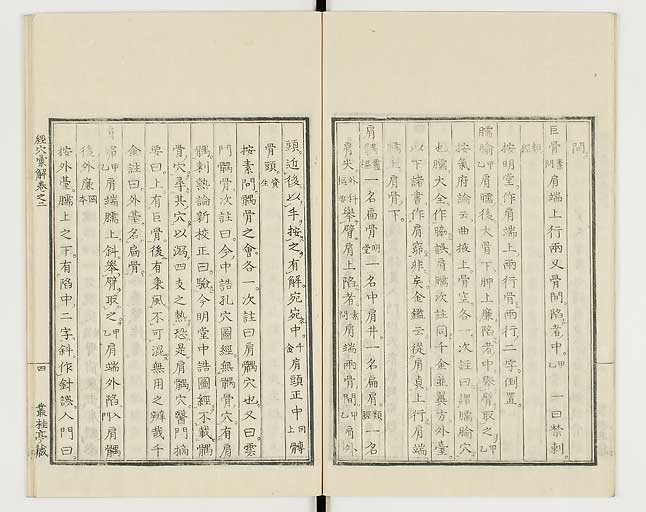 間。
巨骨素問肩端上行兩叉骨間陷者中。甲乙一曰禁刺
類經
按明堂作肩端上兩行骨兩行二字倒置。
臑腧甲乙肩臑後大骨下胛上廉陷者中擧臂取之甲乙
按氣府論云曲掖上骨空各一次註曰謂臑腧穴
也臑大全作臑誤肩臑次註同千金並翼方外臺
以下諸書作肩窌非矣金鑑云從肩貞上行肩端
臑上肩骨下。
肩髃靈樞一名扁骨明堂一名中肩井。一名扁肩。類經一名
肩尖外科樞要擧臂肩上陷者素問肩端兩骨間甲乙肩外
頭近後以手按之有解宛宛中。千金肩頭正中同上髆
骨頭。資生
按素問髃骨之會各一次註曰肩髃穴也又曰雲
門髃骨次註曰今中誥孔穴圖經無髃骨穴有肩
髃刺熱論新校正曰驗今明堂中誥圖經不載髃
骨穴尋其穴以瀉四支之熱恐是肩髃穴醫門摘
要曰上有巨骨後有秉風不可混無用之辨哉千
金註曰外臺名扁骨
肩窌甲乙肩端臑上斜擧臂取之甲乙肩端外陷入門肩髃
後外廉図本
按外臺臑上之下有陷中二字斜作針誤入門曰
經穴彙解卷之二
四
叢桂亭藏